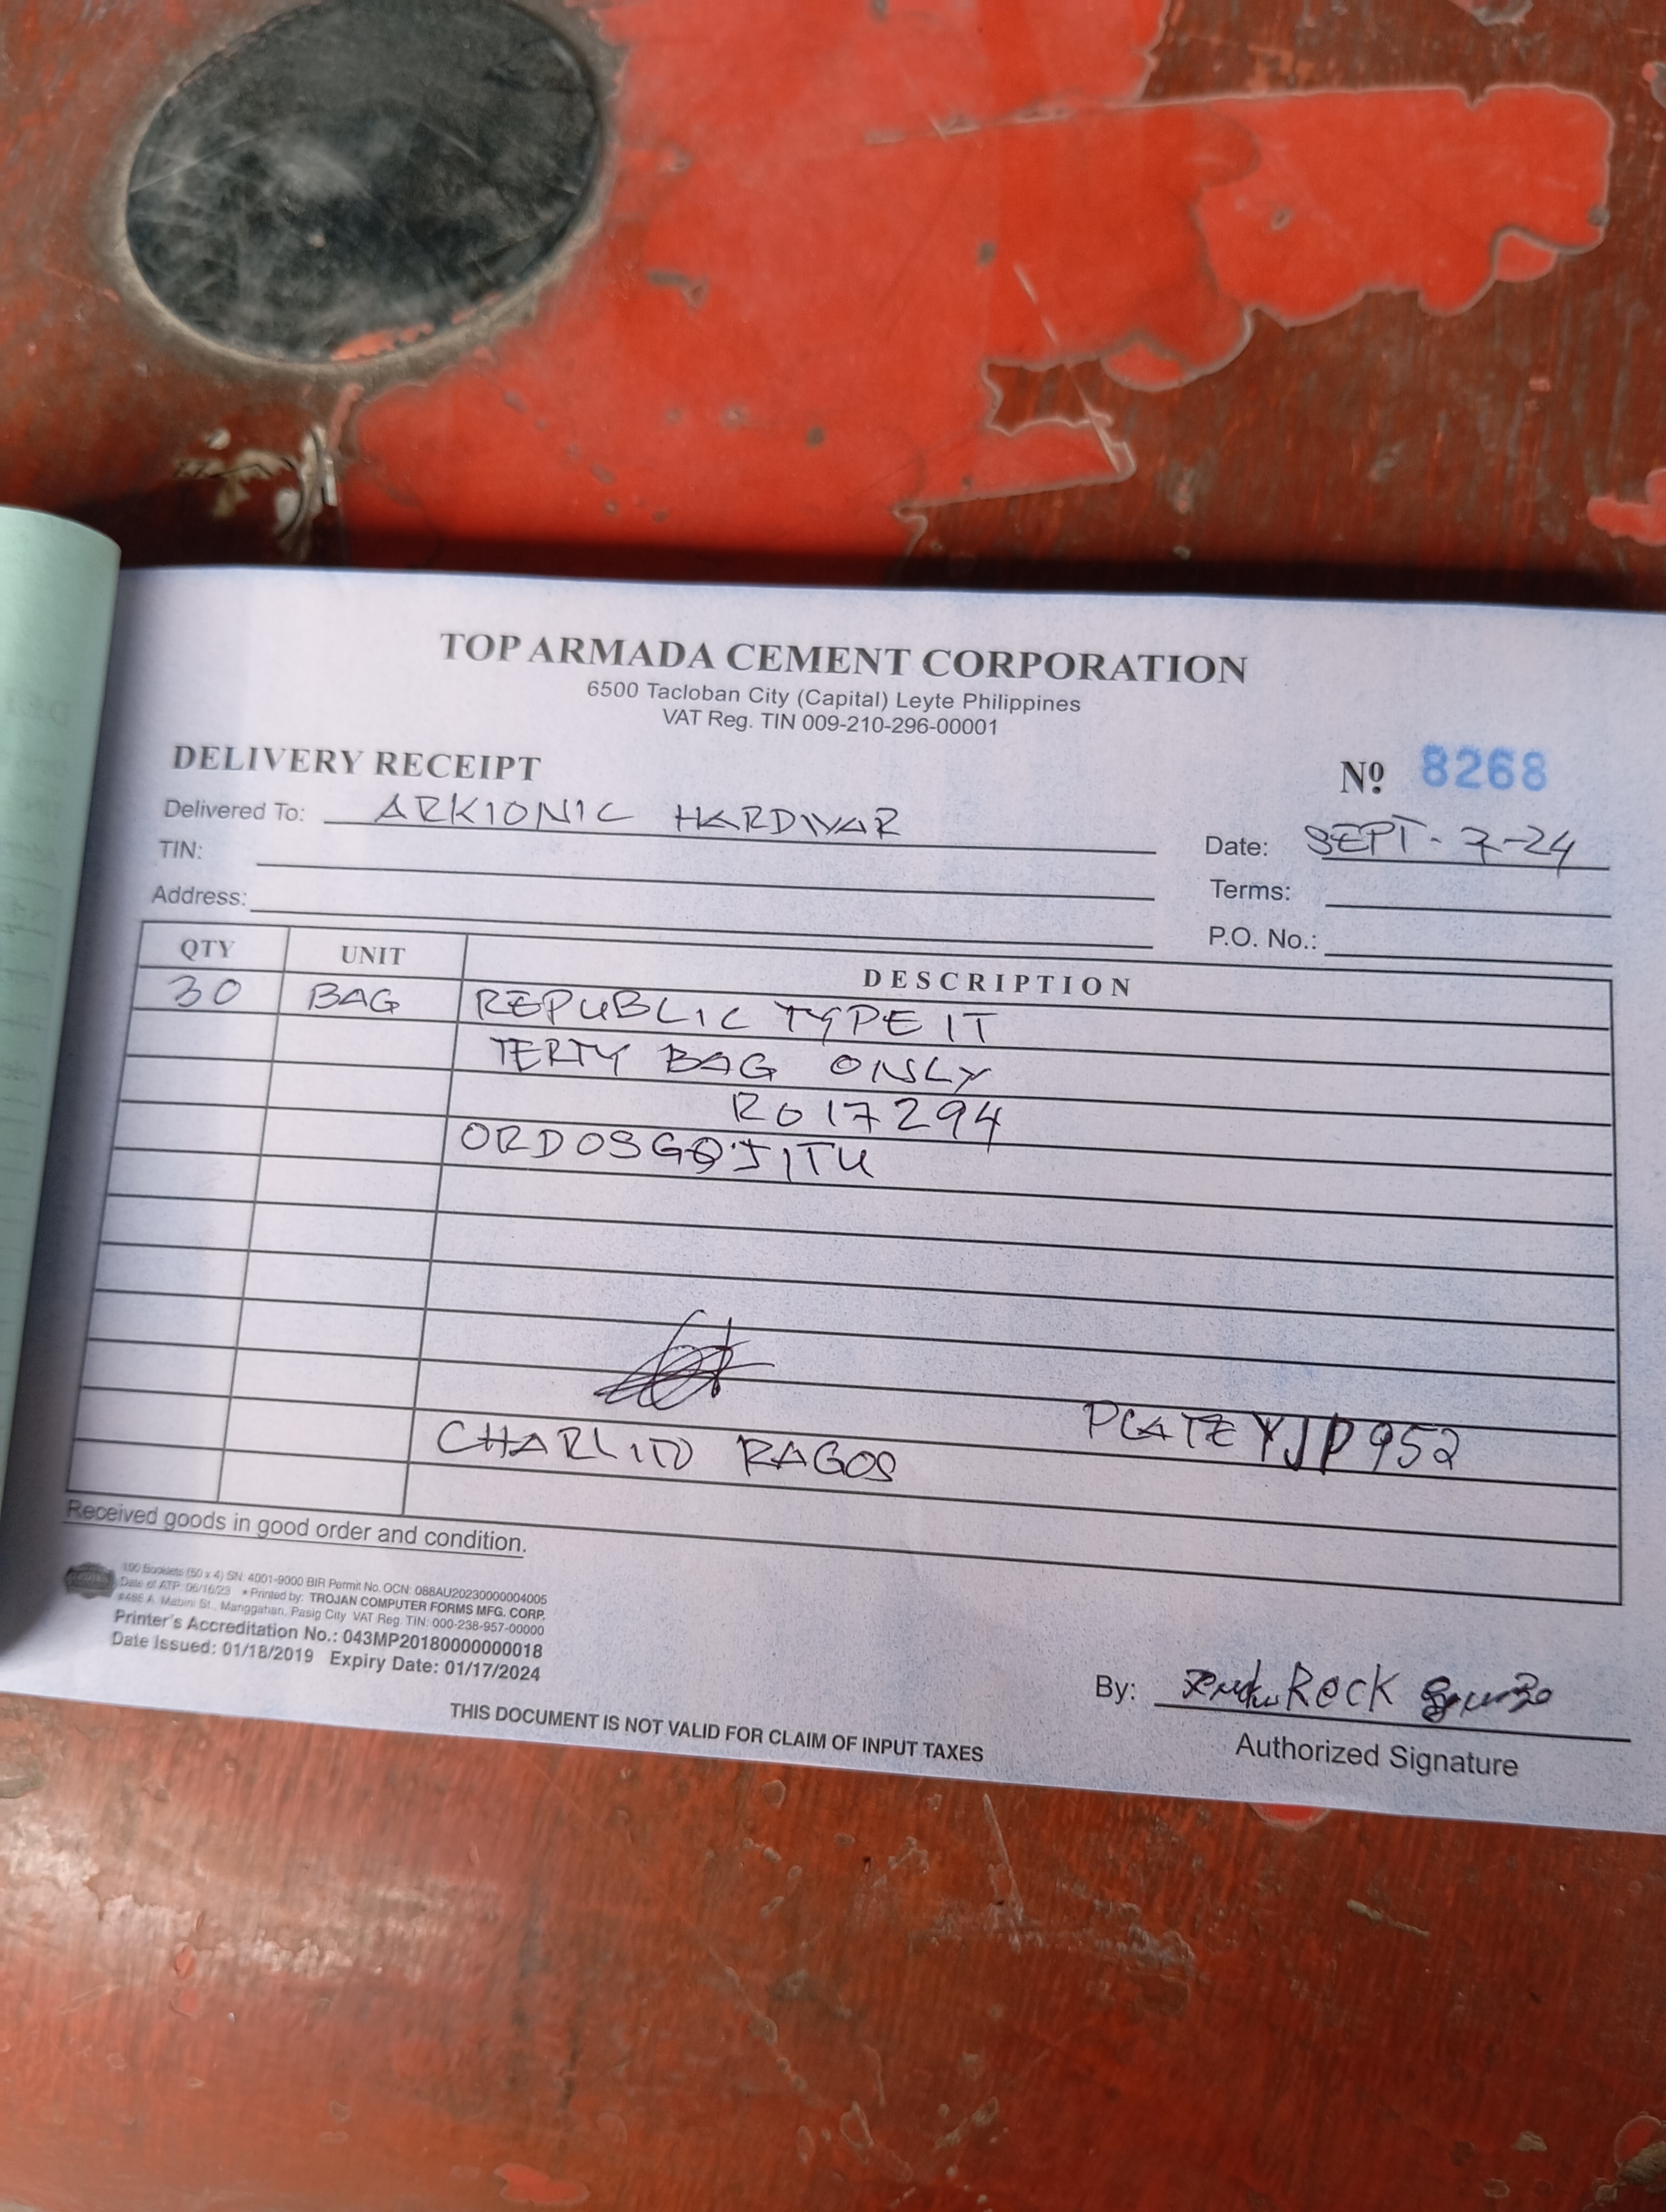 TOP ARMADA CEMENT CORPORATION
6500 Tacloban City (Capital) Leyte Philippines
VAT Reg. TIN 009-210-296-00001
DELIVERY RECEIPT
Nº 8268
Delivered To: ARKIONIC HARDWAR
Date: SEPT-7-24
TIN:
Terms:
Address:
P.O. No.:
QTY UNIT DESCRIPTION
30 BAG REPUBLIC TYPE IT
TERTY BAG ONLY
RO17294
PLATE YJP952
CHARLITO RAGOS
Received goods in good order and condition.
100 Booklets (50 x 4) SN: 4001-9000 BIR Permit No. OCN: 088AU20230000004005
Date of ATP: 06/16/23 *Printed by: TROJAN COMPUTER FORMS MFG. CORP.
#486 A. Mabini St., Manggahan, Pasig City VAT Reg. TIN: 000-238-957-00000
Printer's Accreditation No.: 043MP20180000000018
Date Issued: 01/18/2019 Expiry Date: 01/17/2024
By: Rock
Authorized Signature
THIS DOCUMENT IS NOT VALID FOR CLAIM OF INPUT TAXES